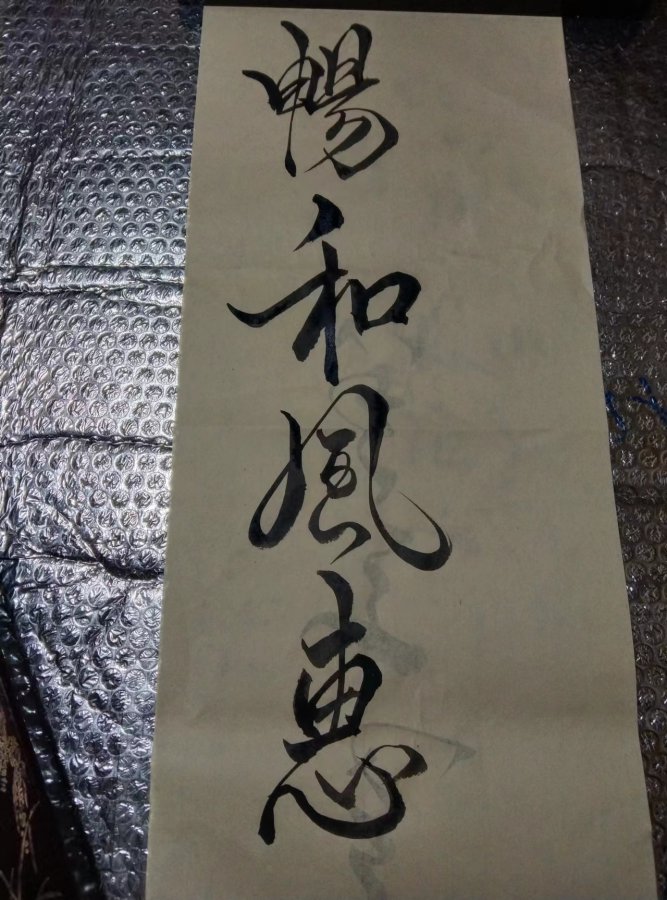 暢和風惠